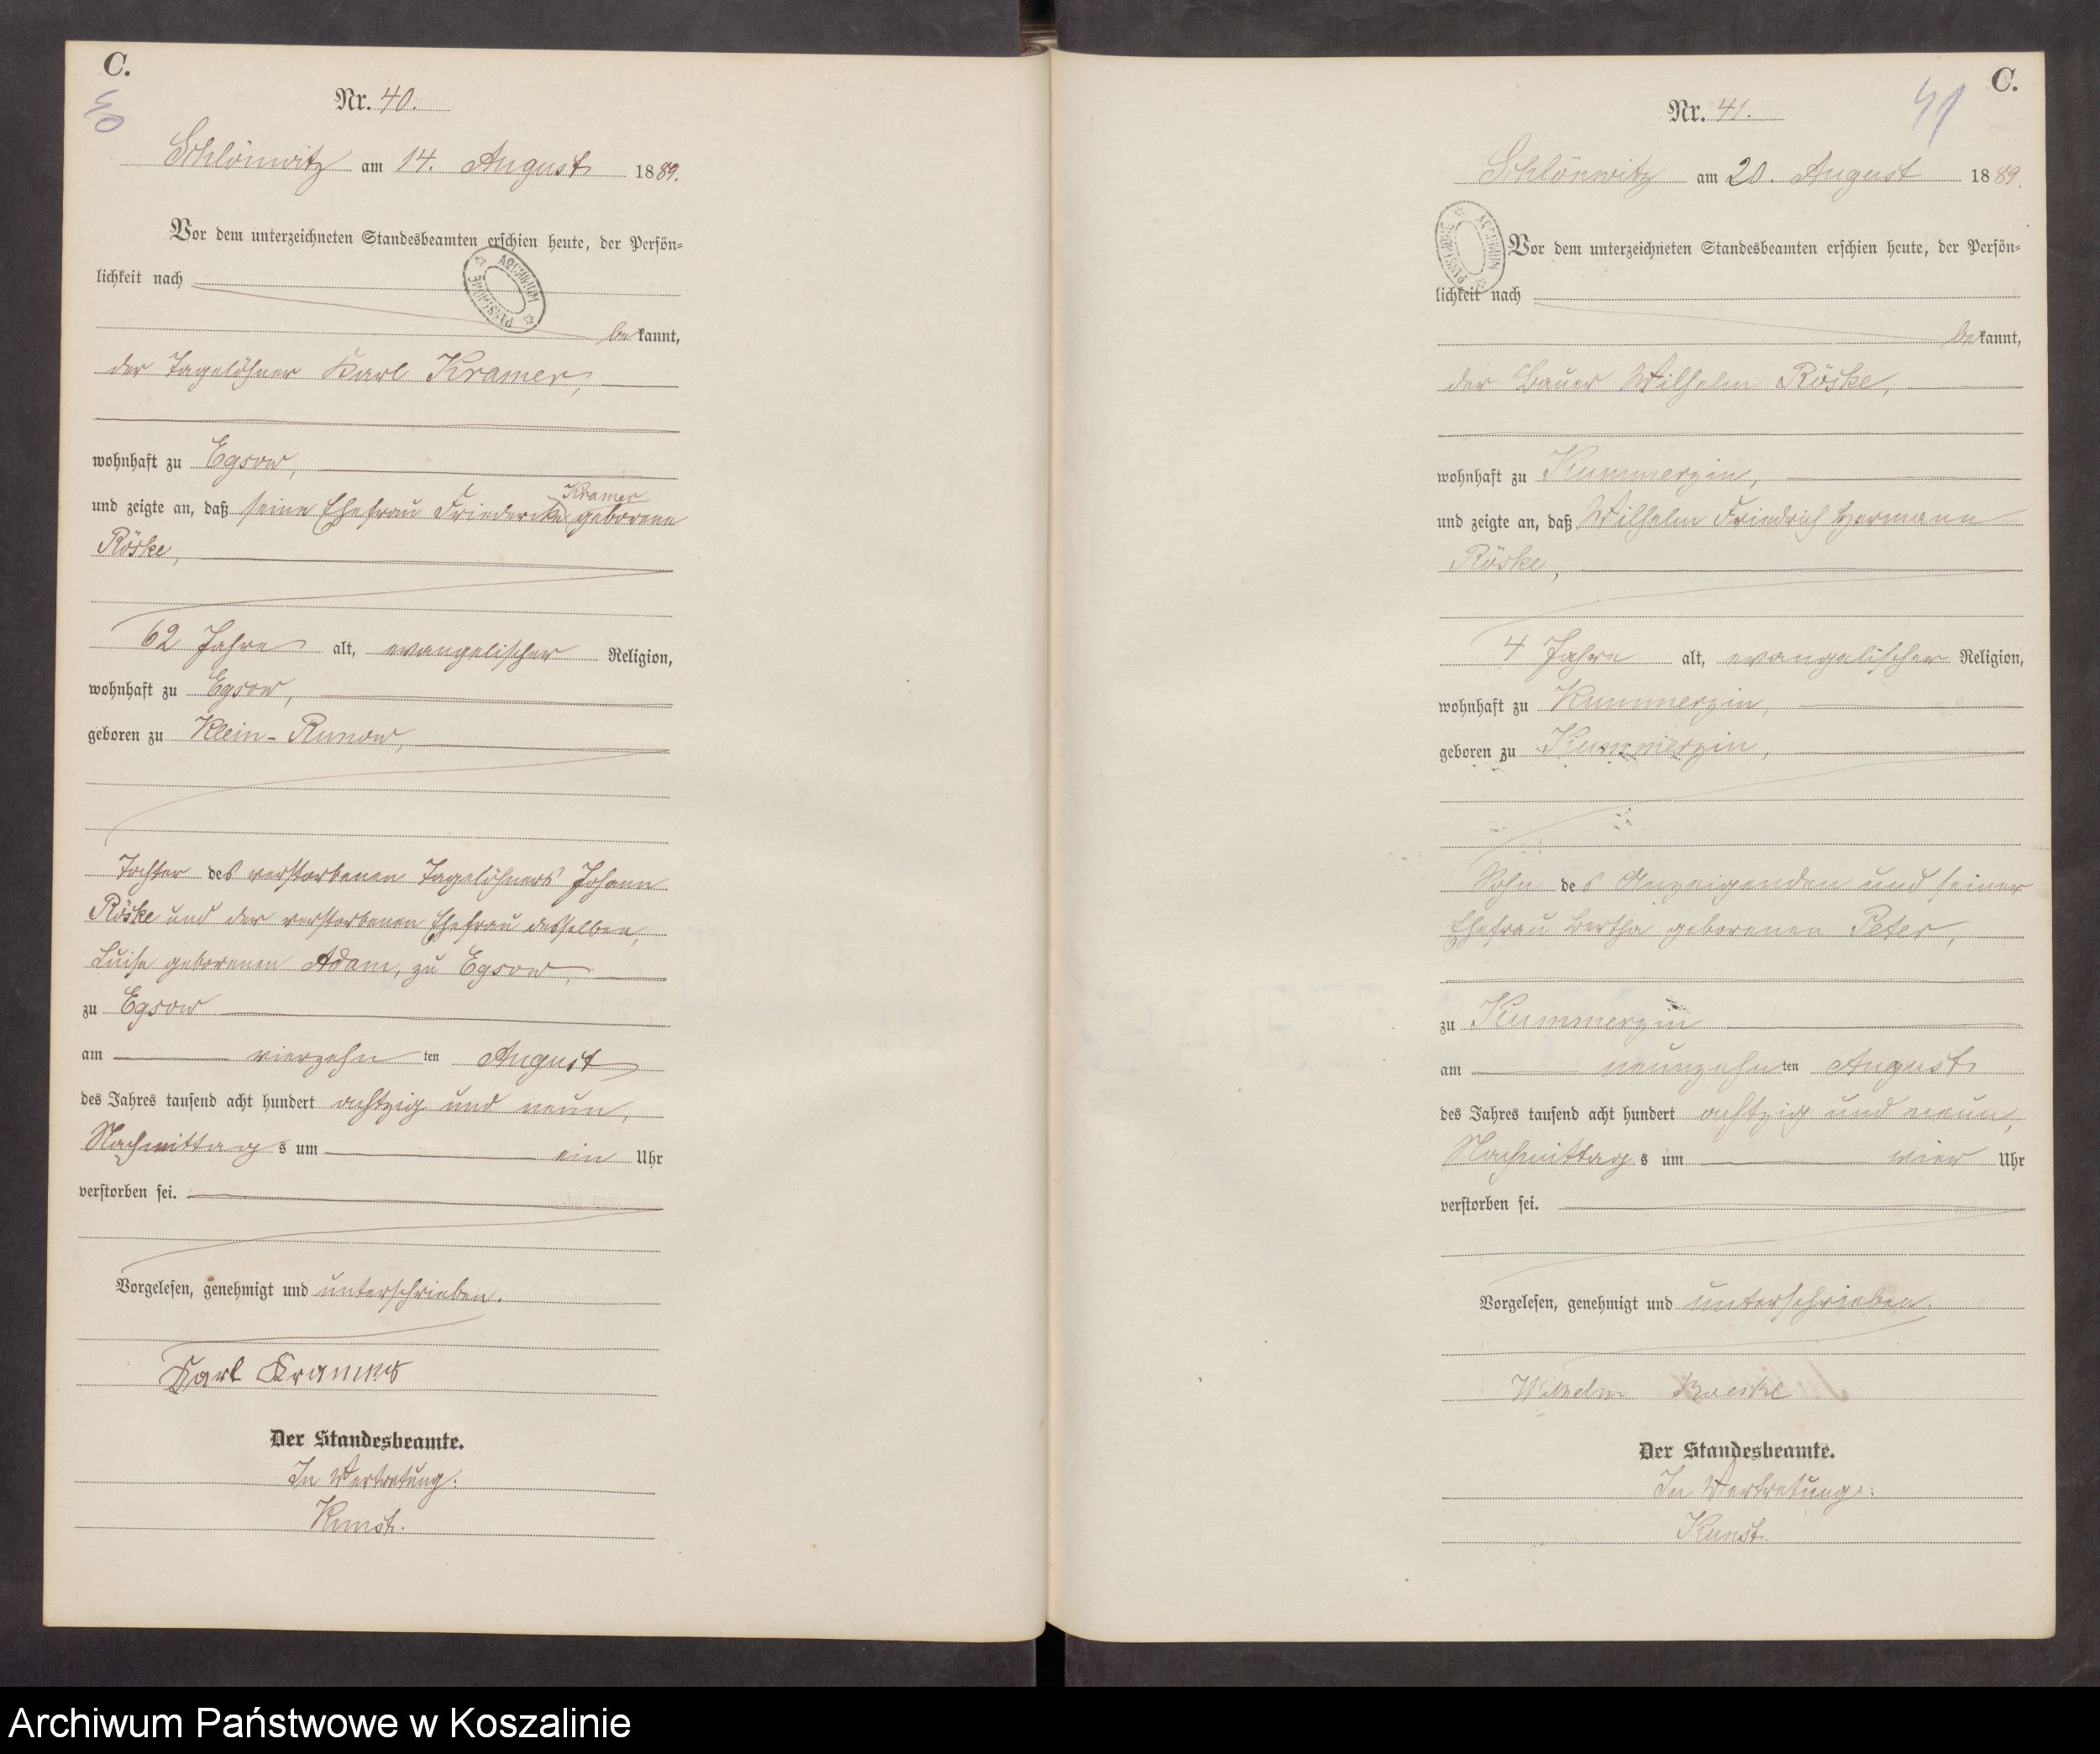 C.
40
Nr. 40.
Schlönwitz am 14. August 1889.
Vor dem unterzeichneten Standesbeamten erschien heute, der Persön-
lichkeit nach
bekannt,
der Tagelöhner Karl Kramer,
wohnhaft zu Egsow,
Kramer
und zeigte an, daß seine Ehefrau Friedericke geborene
Röske,
62 Jahre alt, evangelischer Religion,
wohnhaft zu Egsow,
geboren zu Klein-Runow,
Tochter des verstorbenen Tagelöhners Johann
Röske und der verstorbenen Ehefrau desselben,
Luise geborenen Adam, zu Egsow,
zu Egsow
am vierzehnten August
des Jahres tausend acht hundert achtzig und neun,
Nachmittags um ein Uhr
verstorben sei.
Vorgelesen, genehmigt und unterschrieben.
Karl Kramer
Der Standesbeamte.
In Vertretung:
Kunst.
ARCHIWUM PAŃSTWOWE
C.
41
Nr. 41.
Schlönwitz am 20. August 1889.
Vor dem unterzeichneten Standesbeamten erschien heute, der Persön-
lichkeit nach
bekannt,
der Bauer Wilhelm Röske,
wohnhaft zu Kummerzin,
und zeigte an, daß Wilhelm Friedrich Hermann
Röske,
4 Jahre alt, evangelischer Religion,
wohnhaft zu Kummerzin,
geboren zu Kummerzin,
Sohn des Anzeigenden und seiner
Ehefrau Bertha geborenen Peter,
zu Kummerzin
am neunzehnten August
des Jahres tausend acht hundert achtzig und neun,
Nachmittags um vier Uhr
verstorben sei.
Vorgelesen, genehmigt und unterschrieben.
Wilhelm Roeske
Der Standesbeamte.
In Vertretung:
Kunst.
ARCHIWUM PAŃSTWOWE
Archiwum Państwowe w Koszalinie